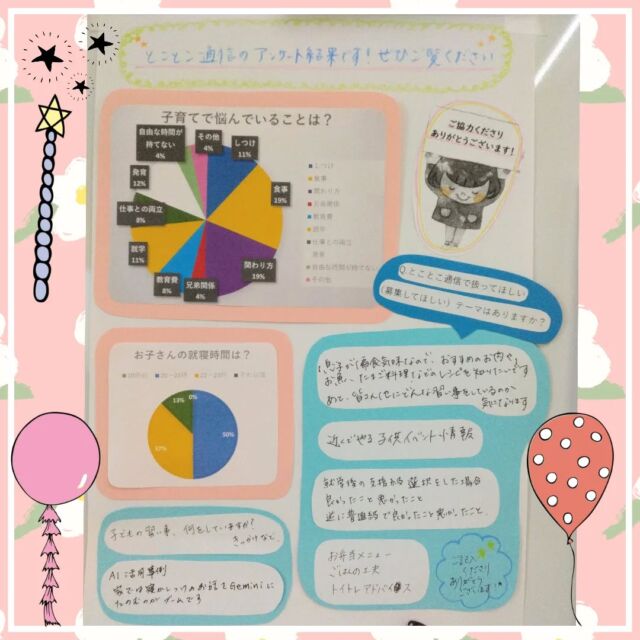 とことこ通信のアンケート結果です！ぜひご覧ください
子育てで悩んでいることは？
自由な時間が持てない
4%
その他
4%
しつけ
11%
発育
12%
食事
19%
仕事との両立
8%
就学
11%
教育費
8%
兄弟関係
4%
関わり方
19%
しつけ
食事
関わり方
兄弟関係
教育費
就学
仕事との両立
発育
自由な時間が持てない
その他
ご協力くださり
ありがとうございます！
Q.とことこ通信で扱ってほしい
(募集してほしい) テーマはありますか？
お子さんの就寝時間は？
0%
13%
37%
50%
息子が偏食気味なので、おすすめのお肉や
お魚、たまご料理などのレシピを知りたいです
あと、皆さんどんな習い事をしているのか
気になります
近くでやる子供イベント情報
就学後の支援から選択をした場合
良かったこと悪かったこと
逆に普通級で良かったこと悪かったこと
お弁当メニュー
ごはんの工夫
トイトレアドバイス
ご記入
くださり
ありがとう
ございます！
子どもの習い事、何をしていますか？
きっかけなど
AI活用事例
家では寝かしつけのお話をGeminiに
たのむのがブームです